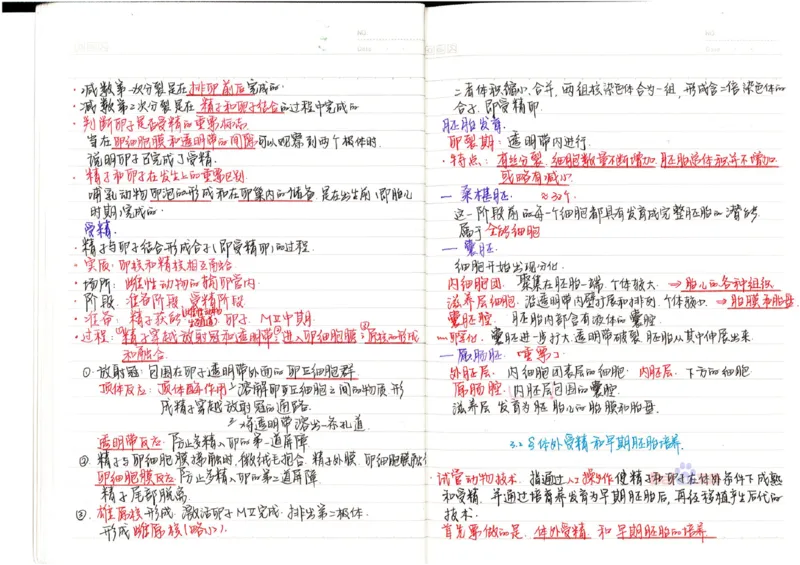 ·减数第一次分裂是在排卵前后完成的.
·减数第二次分裂是在精子和卵子结合的过程中完成的
·判断卵子是否受精的重要标志
当在卵细胞膜和透明带的间隙可以观察到两个极体时.
说明卵子已完成了受精.
·精子和卵子在发生上的重要区别
哺乳动物卵泡的形成和在卵巢内的储备.是在出生前(即胎儿
时期)完成的
受精.
·精子与卵子结合形成合子(即受精卵)的过程.
·实质:卵核和精核相互融合
·场所:雌性动物的输卵管内
·阶段:准备阶段.受精阶段
·准备:精子获能 卵子 MⅡ中期.
·过程:①精子穿越放射冠和透明带②进入卵细胞膜③原核的形成
和融合.
①.放射冠:包围在卵子透明带外面的卵丘细胞群
顶体反应:顶体酶作用 溶解卵丘细胞之间的物质.形
成精子穿越放射冠的通路.
将透明带溶出一条孔道.
透明带反应:防止多精入卵的第一道屏障
② 精子与卵细胞膜接触时,微绒毛抱合.精子外膜.卵细胞膜融合
卵细胞膜反应:防止多精入卵的第二道屏障.
精子尾部脱离.
③.雄原核形成.激活卵子MⅡ完成.排出第二极体.
形成雌原核(略小).
二者体积缩小,合并,两组核染色体合为一组,形成含二倍染色体的
合子.即受精卵.
胚胎发育.
卵裂期:透明带内进行.
·特点:有丝分裂.细胞数量不断增加.胚胎总体积并不增加
或略有减小
一 桑椹胚. ≈32个.
这一阶段前的每一个细胞都具有发育成完整胚胎的潜能
属于全能细胞
一 囊胚.
细胞开始出现分化.
内细胞团.聚集在胚胎一端.个体较大.→胎儿的各种组织
滋养层细胞.沿透明带内壁扩展和排列.个体较小.→胎膜和胎盘
囊胚腔. 胚胎内部含有液体的囊腔.
孵化.囊胚进一步扩大.透明带破裂.胚胎从其中伸展出来.
一 原肠胚.(重要)
外胚层.内细胞团表层的细胞.内胚层.下方的细胞
原肠腔.内胚层包围的囊腔.
滋养层 发育为胚胎儿的胎膜和胎盘.
3.2 §体外受精和早期胚胎培养.
·试管动物技术.指通过人工操作使精子和卵子在体外条件下成熟
和受精.并通过培育养发育为早期胚胎后,再经移植产生后代的
技术.
首先要做的是.体外受精 和 早期胚胎的培养.